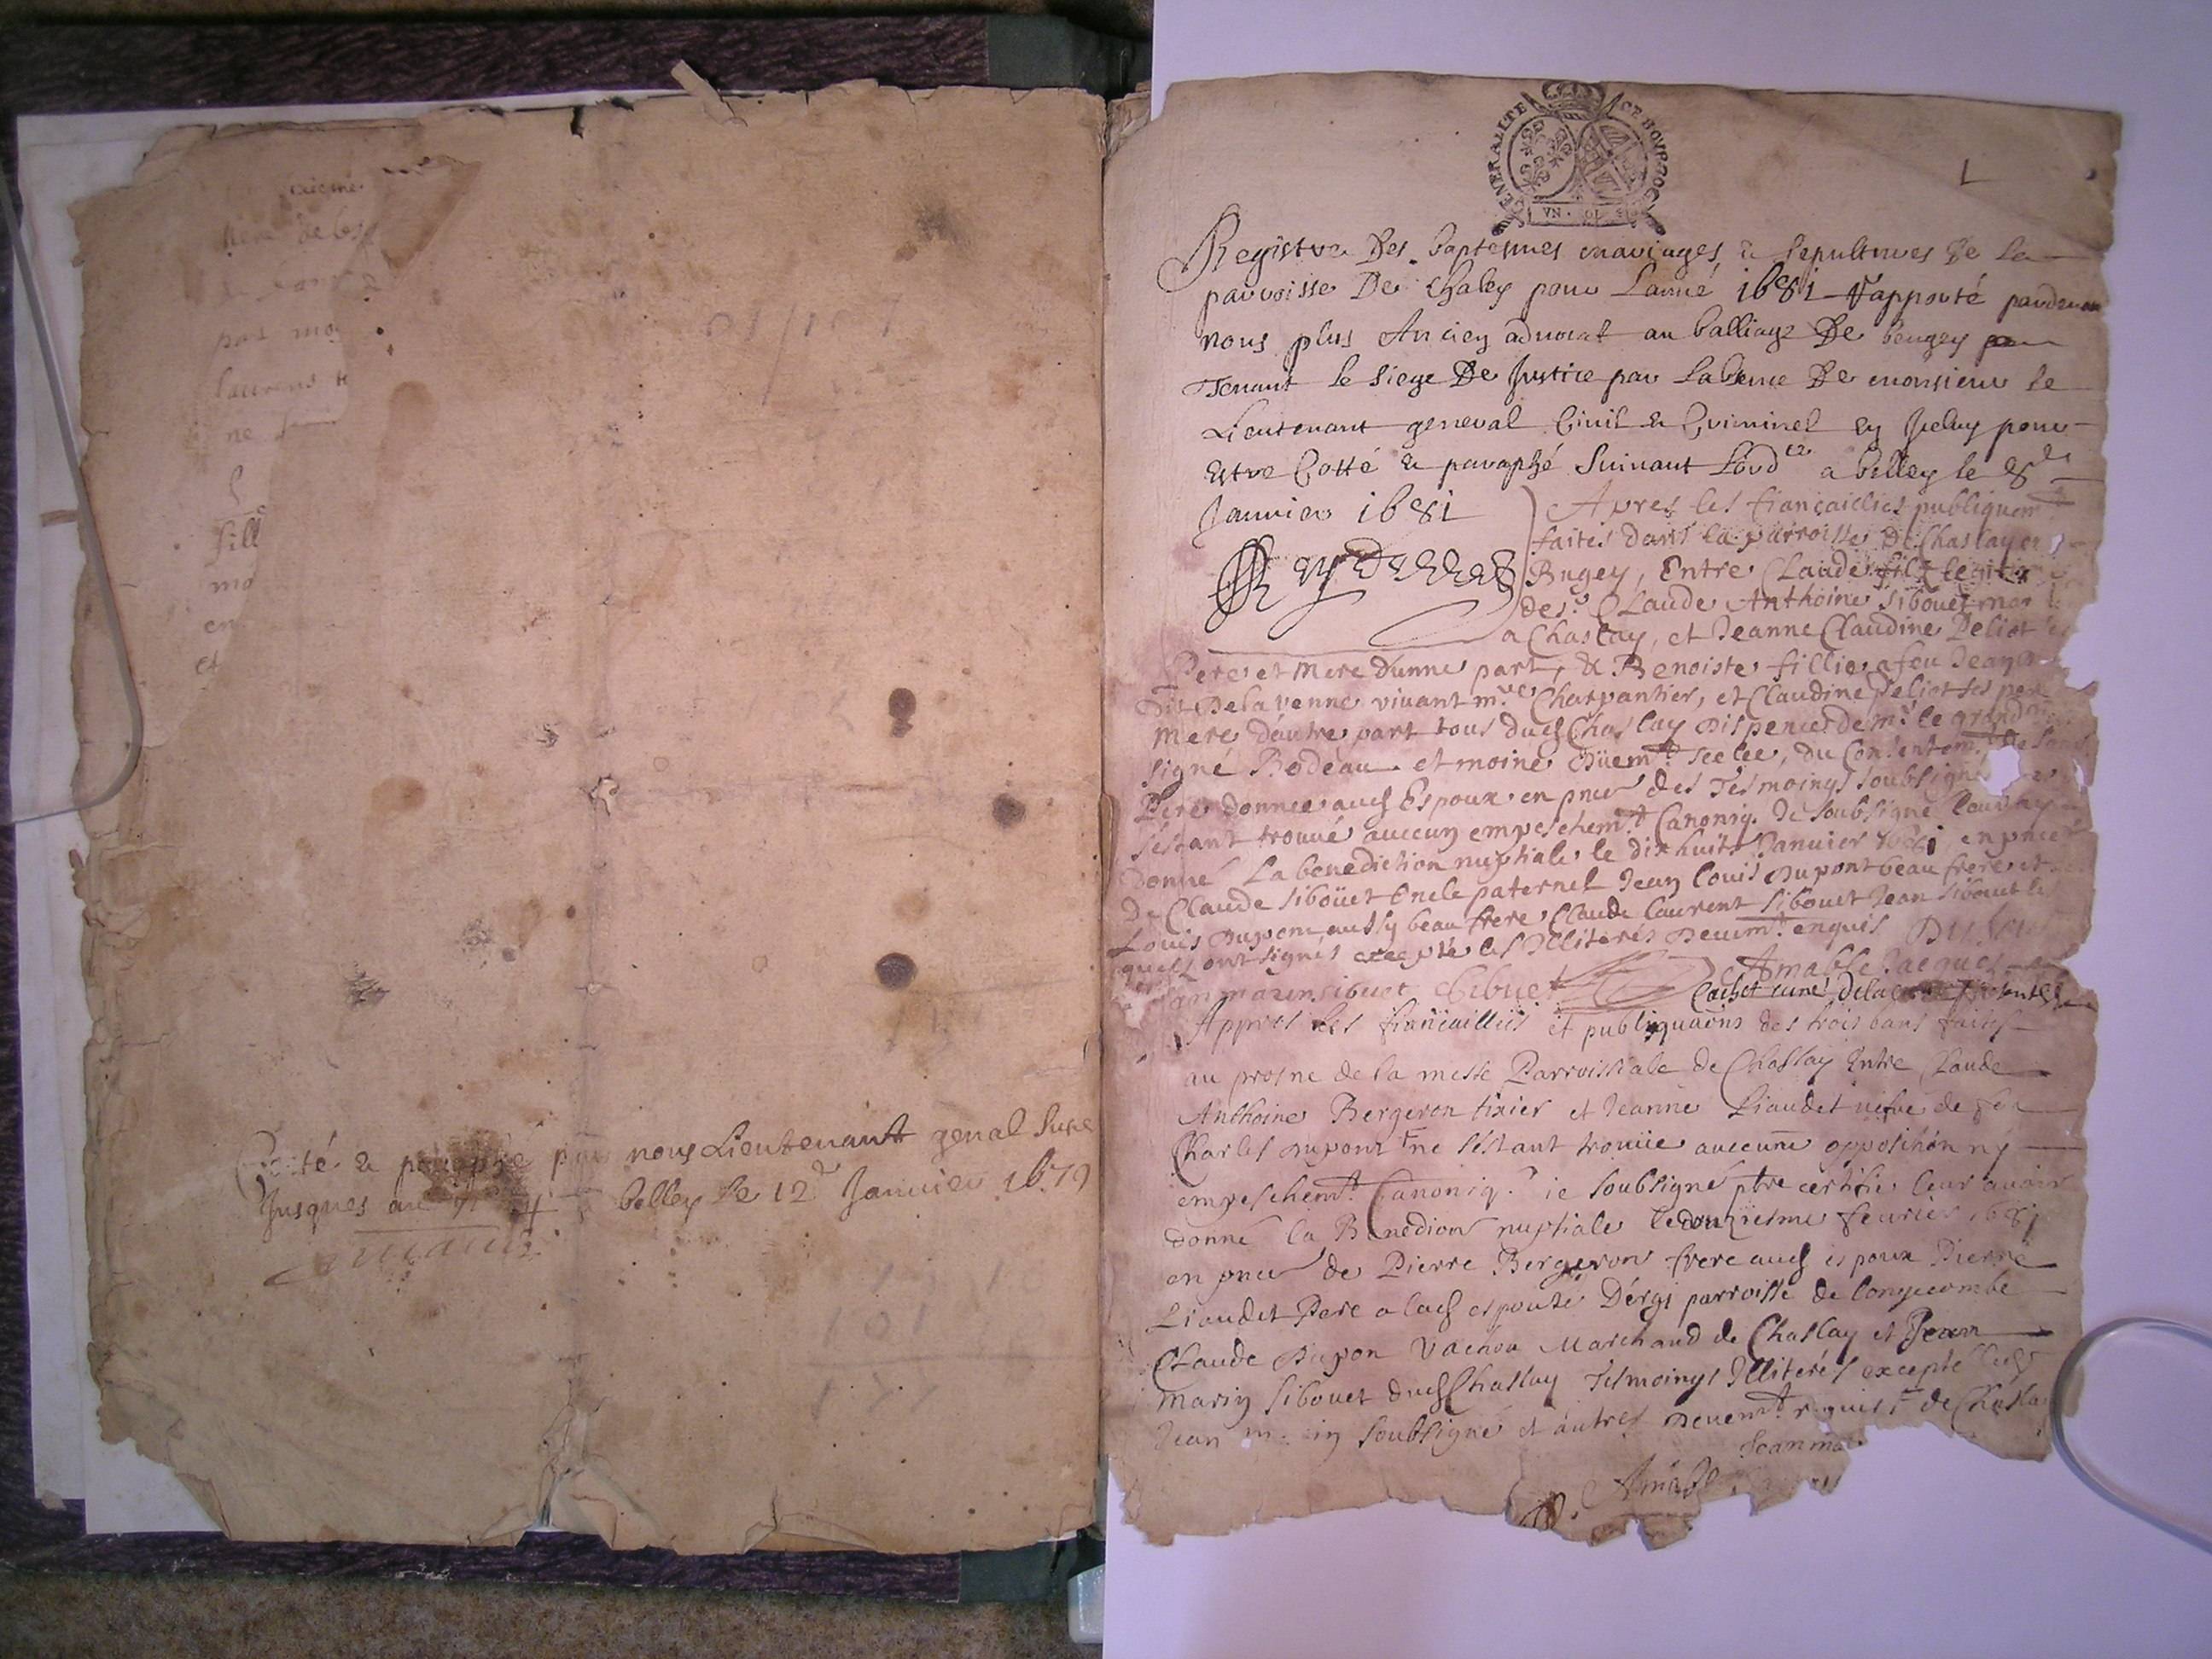 par mo
fill
mo
en
et
Cotté & paraphé par nous Lieutenant genal
Jusques au belley le 12e Janvier 1679
GENERALITE DE BOURGOG
VN SOL
Registre Des baptesmes mariages & sepultures De La
parroisse De Chaley pour Lanné 1681 rapporté pardevan
nous plus Ancien advocat au balliage De beugey
Tenant le siege De Justice par Labsence De monsieur le
Lieutenant general Civil & Criminel en Jceluy pour
Estre Cotté & paraphé suivant Lordce a belley le 8
Janvier 1681
Apres les fiançaillies publiquemt
faites dans la parroisse De Chaslay en
Bugey, Entre Claude filz
de sr Claude Anthoine Sibouet
a Chaslay, et Jeanne Claudine Peliot
Pere et Mere d'une part, & Benoiste fillie a feu Jean
Dit Delavenne vivant mre Charpantier, et Claudine Peliot ses per
Mere d'autre part tous dud Chaslay Dispence de mr le grand
signé Bodeau et moine Düemt scelee, du Consentemt
Pere donnee aud Espoux en pnce des Tesmoings soubsigne
s'estant trouué auccun empeschemt Canoniq. Je soubsigné leur ay
Donné La benediction nuptiale le dixhuit Januier 1681 en pnce
De Claude Sibouet Oncle paternel Jean Louis Dupont beau frere et
Louis Dupont aussy beau frere Claude Laurent Sibouet Jean Sibouet les
quels ont signés excepté les Illiterés Deuemt enquis
Jean marin sibuet CSibuet Amable Jacques
Cochet curé de la
Appres les fiançaillies et publiquaõns des trois bans faites
au prosne de la messe Parroissiale de Chaslay Entre Claude
Anthoine Bergeron tixier et Jeanne Liaudet uefue de feu
Charles Dupont ne s'estant trouüe auccune opposition ny
empeschemt Canoniq. ie soubsigné ptre certifie leur auoir
donné la Benediõn nuptiale le douziesme feurier 1681
en pnce de Pierre Bergeron frere aud espoux Pierre
Liaudet Pere a lad espouse Dérgi parroisse de longecombe
Claude Dupon Vachou Marchand de Chaslay et Jean
Marin Sibouet dud Chaslay Tesmoings Illiterés excepté led
Jean soubsigné et autres Deuemt requis de Chaslay
Jean ma
Amabl